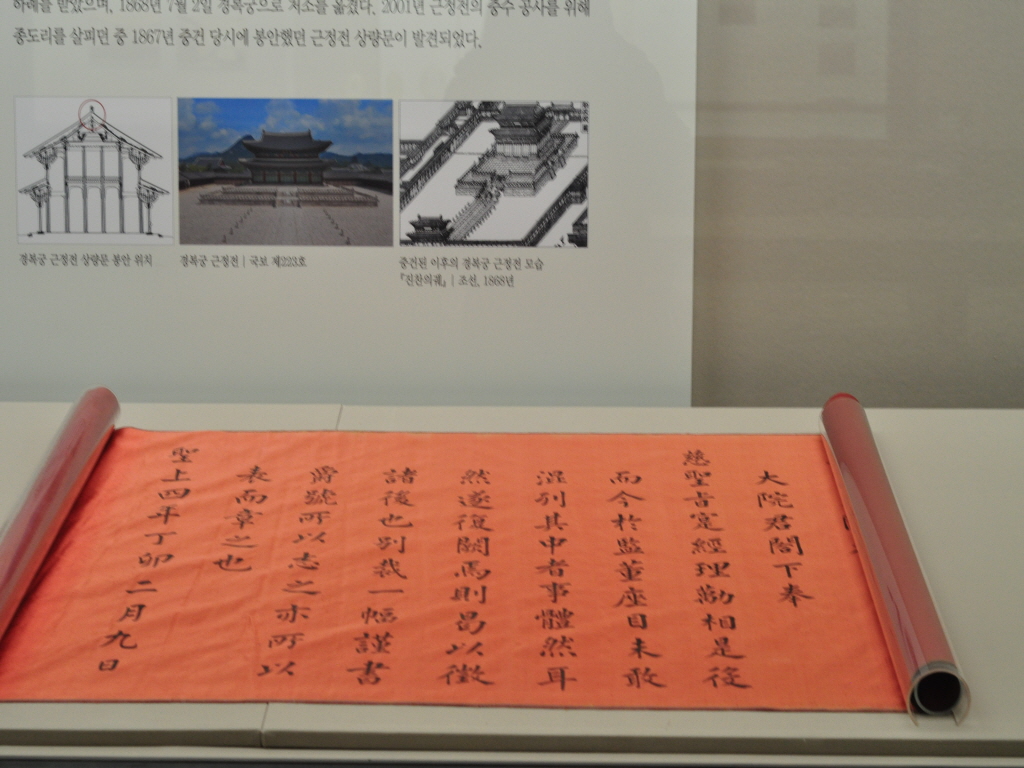 하례를 받았으며, 1868년 7월 2일 경복궁으로 처소를 옮겼다. 2001년 근정전의 중수 공사를 위해
종도리를 살피던 중 1867년 중건 당시에 봉안했던 근정전 상량문이 발견되었다.
경복궁 근정전 상량문 봉안 위치
경복궁 근정전 | 국보 제223호
중건된 이후의 경복궁 근정전 모습
『진찬의궤』 | 조선, 1868년
大院君閤下奉
慈聖旨寔經理勷相是役
而今於監董座目未敢
混列其中者事體然耳
然遂復闕焉則曷以徵
諸後也別裁一幅謹書
爵號所以志之亦所以
表而章之也
聖上四年丁卯二月九日